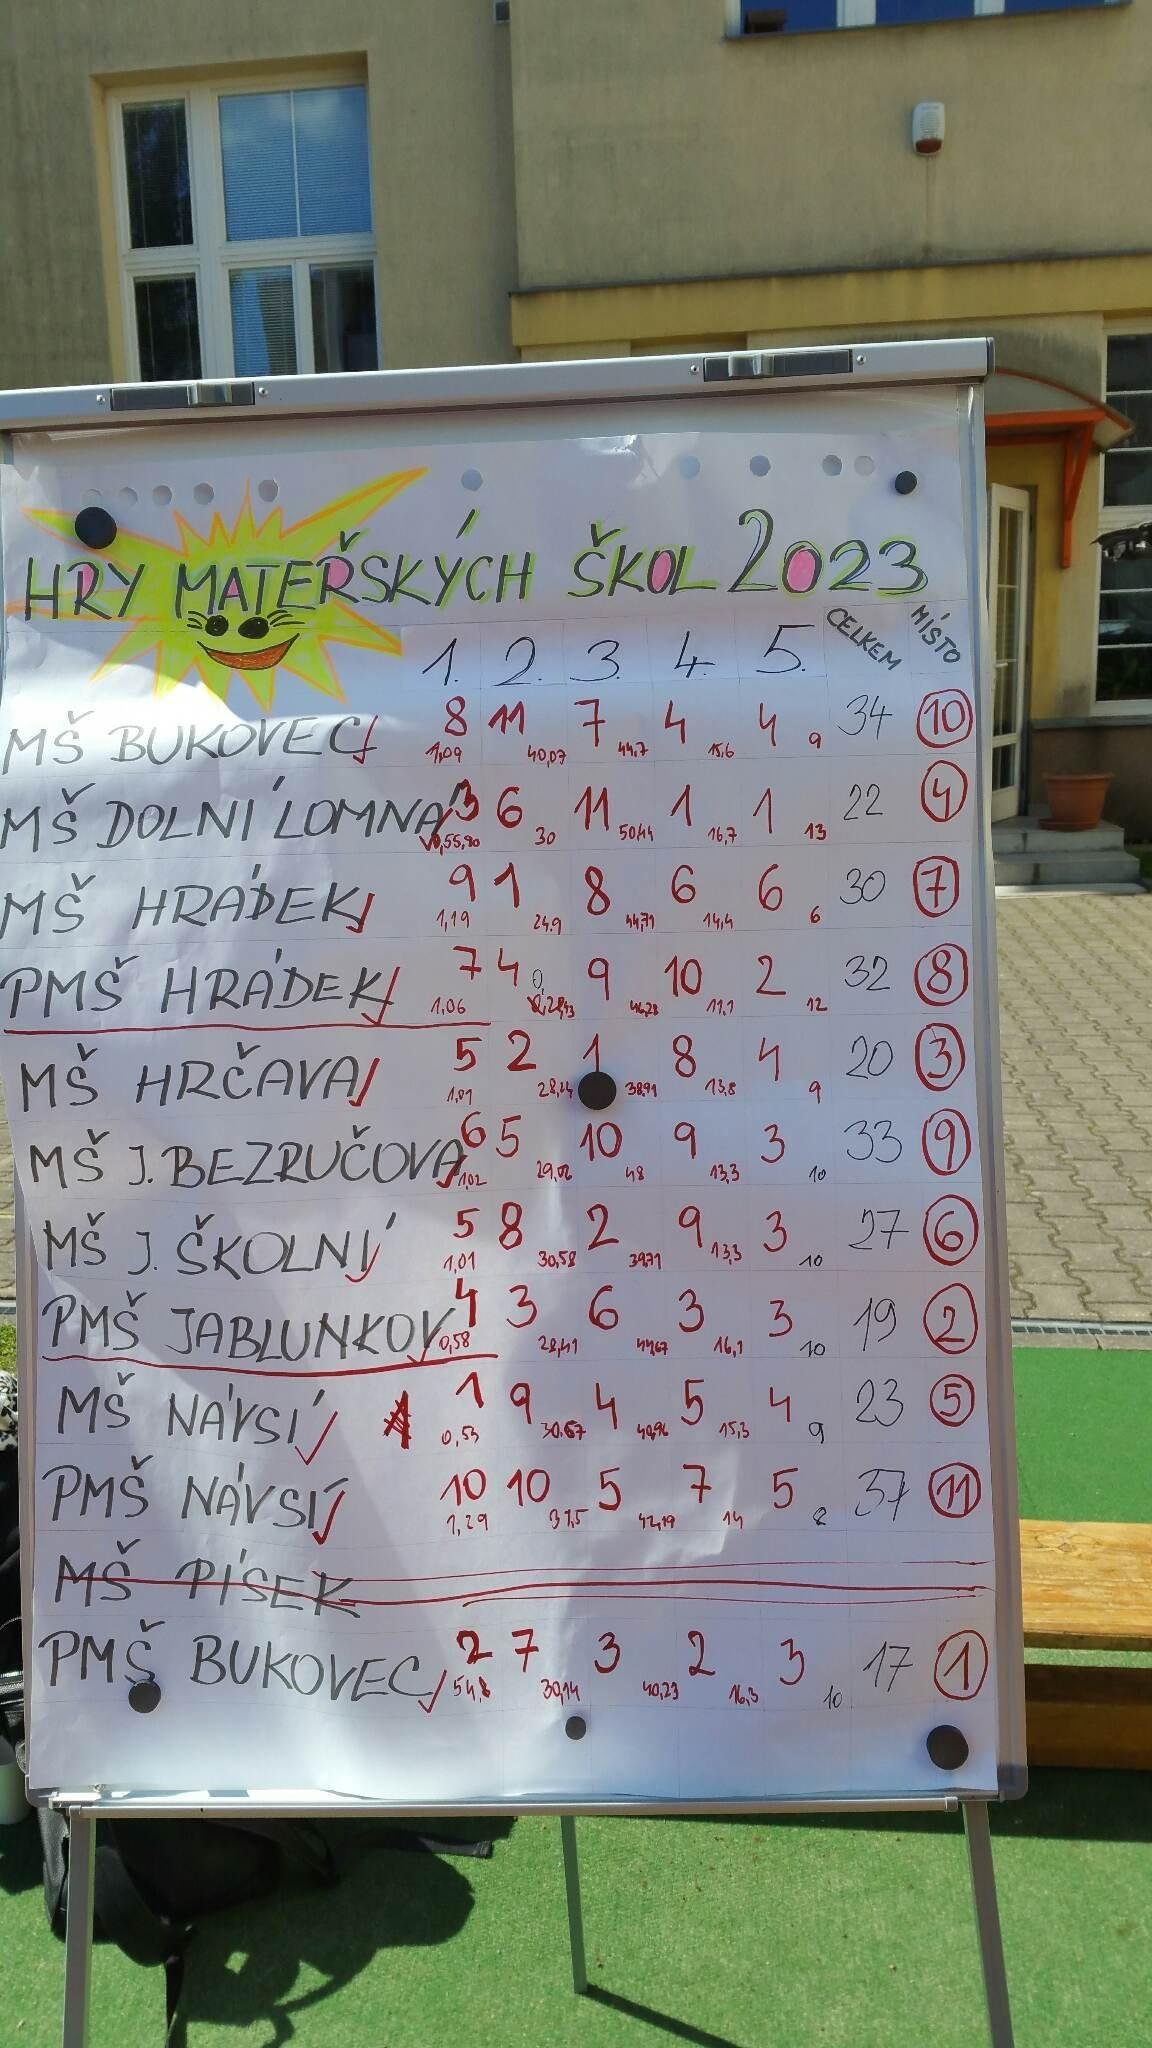 HRY MATEŘSKÝCH ŠKOL 2023
1. 2. 3. 4. 5. CELKEM MÍSTO
MŠ BUKOVEC 8 1,09 11 40,07 7 44,7 4 15,6 4 9 34 10
MŠ DOLNÍ LOMNÁ 3 0,55,80 6 30 11 50,44 1 16,7 1 13 22 4
MŠ HRÁDEK 9 1,19 1 24,9 8 44,71 6 14,4 6 6 30 7
PMŠ HRÁDEK 7 1,06 4 9 46,28 10 11,1 2 12 32 8
MŠ HRČAVA 5 1,01 2 28,24 1 38,91 8 13,8 4 9 20 3
MŠ J. BEZRUČOVA 6 1,02 5 29,02 10 48 9 13,3 3 10 33 9
MŠ J. ŠKOLNÍ 5 1,01 8 30,58 2 39,71 9 13,3 3 10 27 6
PMŠ JABLUNKOV 4 0,58 3 28,41 6 44,67 3 16,1 3 10 19 2
MŠ NÁVSÍ 1 0,53 9 30,67 4 40,96 5 15,3 4 9 23 5
PMŠ NÁVSÍ 10 1,29 10 37,5 5 42,19 7 14 5 8 37 11
MŠ PÍSEK
PMŠ BUKOVEC 2 54,8 7 30,14 3 40,23 2 16,3 3 10 17 1